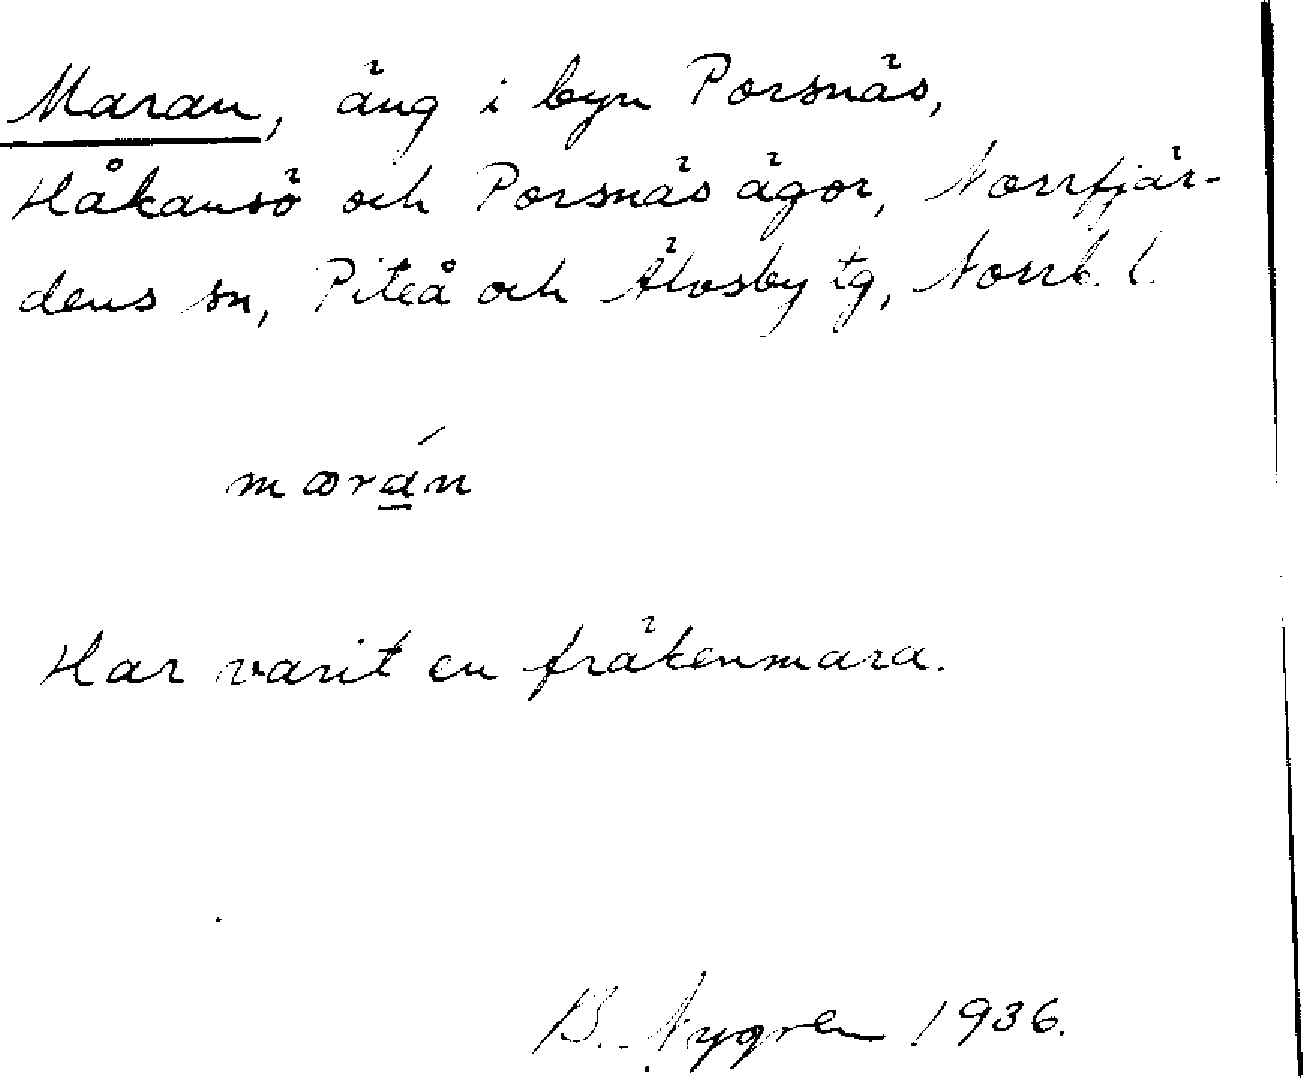 Maran, äng i byn Porsnäs,
Håkansö och Porsnäs ägor, Norrfjär-
dens sn, Piteå och Älvsby tg, Norrb. l.
mɷrán
Har varit en fräkenmara.
B. Nygren 1936.